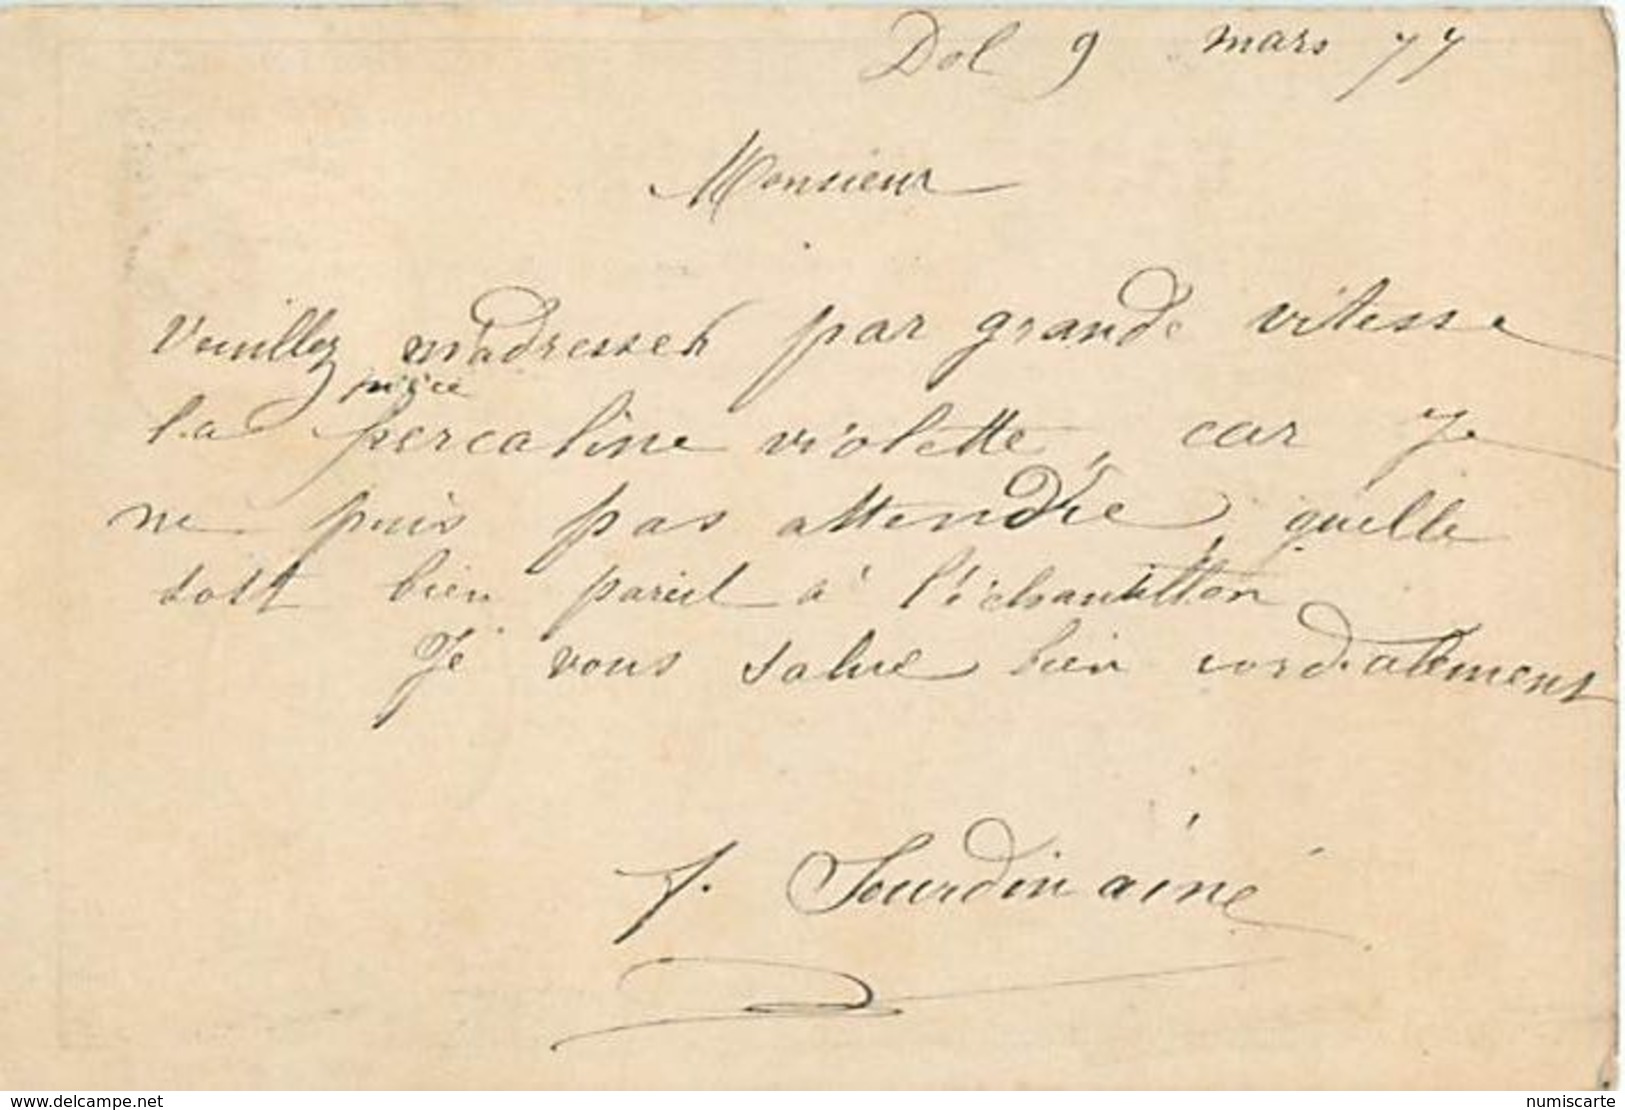 Dol 9 mars 77
Monsieur
Veuillez m'adresser par grande vitesse
pièce
la percaline violette, car Je
ne puis pas attendre, quelle
soit bien pareil à l'échantillon
Je vous salue bien cordialement
J. Jourdin ainé
www.delcampe.net
numiscarte